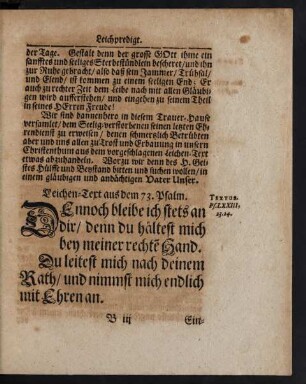 Leichpredigt.
der Tage. Gestalt denn der grosse GOtt ihme ein
sanfftes und seeliges Sterbestündlein bescheret/ und ihn
zur Ruhe gebracht/ also daß sein Jammer/ Trübsal/
und Elend/ ist kommen zu einem seeligen End: Er
auch zu rechter Zeit dem Leibe nach mit allen Gläubi-
gen wird aufferstehen/ und eingehen zu seinem Theil
in seines HErrn Freude!
Wir sind dannenhero in diesem Trauer-Hause
versamlet/ dem Seelig-verstorbenen seinen letzten Eh-
rendienst zu erweisen/ denen schmertzlich Betrübten
aber und uns allen zu Trost und Erbauung in unsern
Christenthum aus dem vorgeschlagenen Leichen-Text
etwas abzuhandeln. Worzu wir denn des H. Gei-
stes Hülff und Beystand bitten und suchen wollen/ in
einem gläubigen und andächtigen Vater Unser.
Leichen-Text aus dem 73. Psalm.
TEXTUS.
P/LXXIII,
23.24.
DEnnoch bleibe ich stets an
dir/ denn du hältest mich
bey meiner rechtẽ Hand.
Du leitest mich nach deinem
Rath/ und nimmst mich endlich
mit Ehren an.
B iij
Ein-